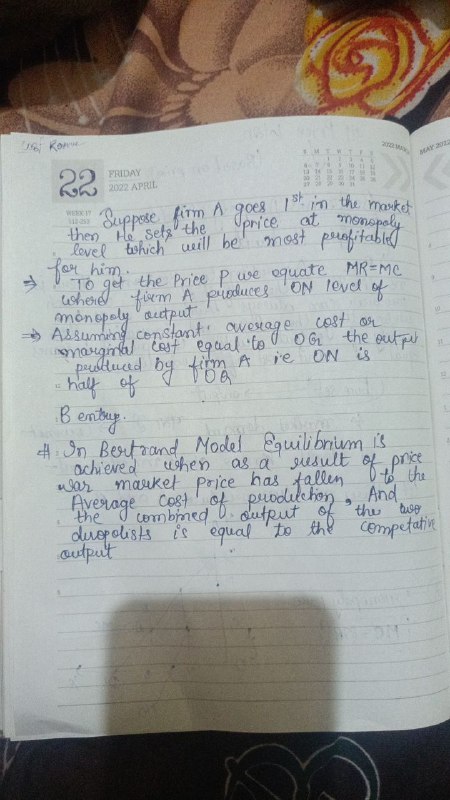 22
FRIDAY
2022 APRIL
WEEK-17
2022 MARCH
S M T W T F S
MAY 2022
Suppose firm A goes 1st in the market
then He sets the price at monopoly
level which will be most profitable
for him.
⇒ To get the Price P we equate MR=MC
where firm A produces ON level of
monopoly output
⇒ Assuming constant average cost or
marginal cost equal to the output
produced by firm A i.e ON is
half of OQ
B entry.
#. In Bertrand Model Equilibrium is
achieved when as a result of price
war market price has fallen to the
Average cost of production, And
the combined output of the two
duopolists is equal to the competative
output